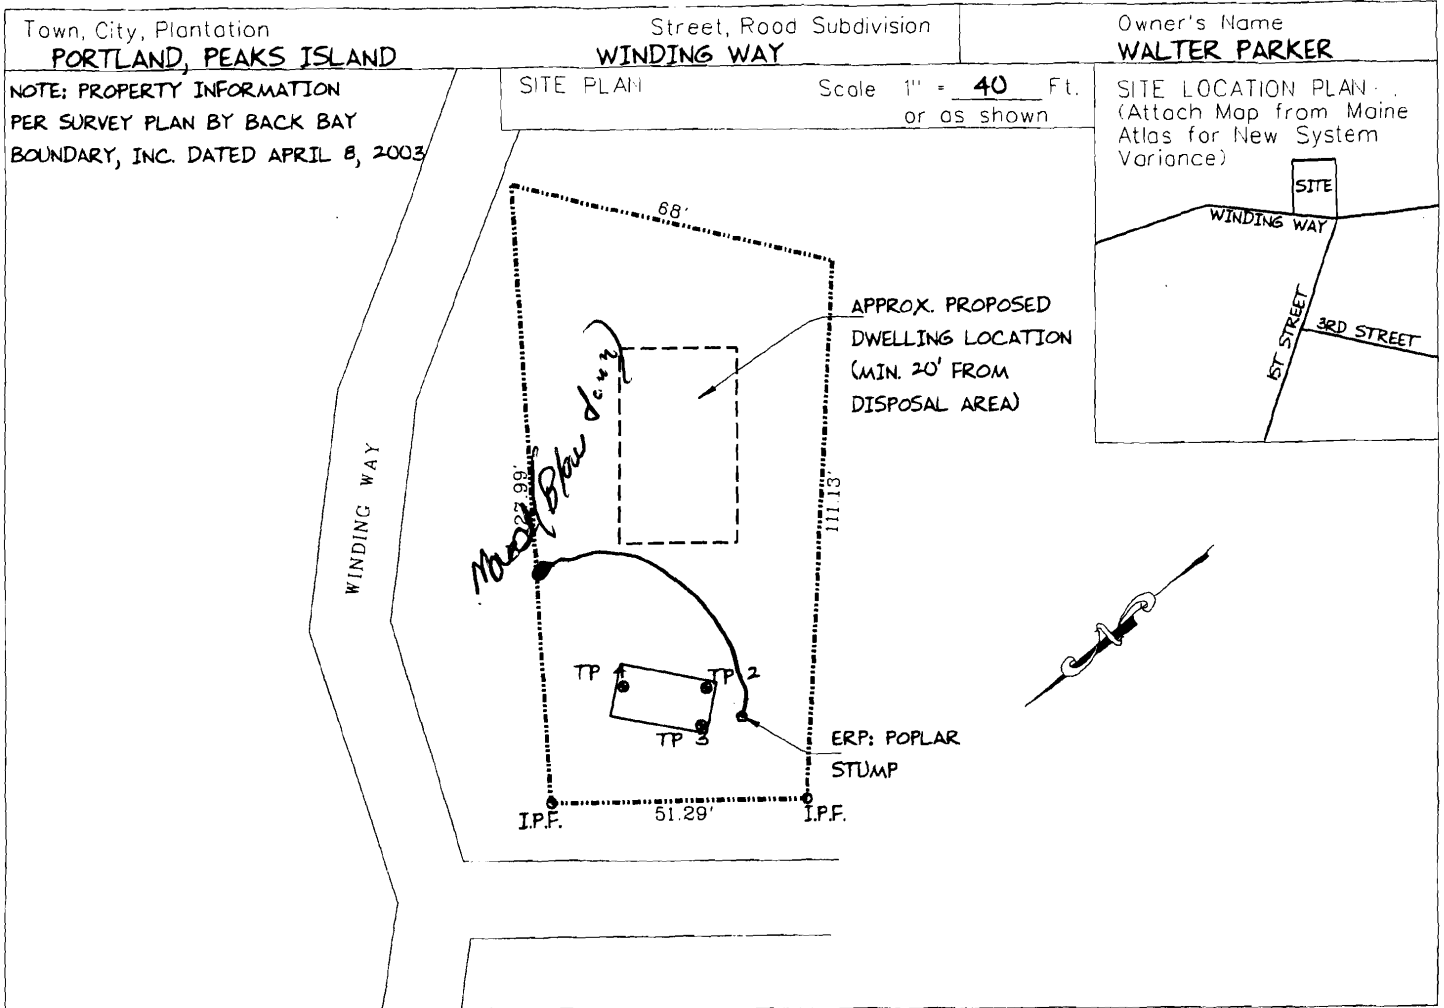 Town, City, Plantation
PORTLAND, PEAKS ISLAND
Street, Road Subdivision
WINDING WAY
Owner's Name
WALTER PARKER
NOTE: PROPERTY INFORMATION
PER SURVEY PLAN BY BACK BAY
BOUNDARY, INC. DATED APRIL 8, 2003
SITE PLAN
Scale 1" = 40 Ft.
or as shown
SITE LOCATION PLAN
(Attach Map from Maine
Atlas for New System
Variance)
SITE
WINDING WAY
1ST STREET
3RD STREET
68'
APPROX. PROPOSED
DWELLING LOCATION
(MIN. 20' FROM
DISPOSAL AREA)
WINDING WAY
111.13'
TP
TP 2
TP 3
ERP: POPLAR
STUMP
I.P.F.
51.29'
I.P.F.